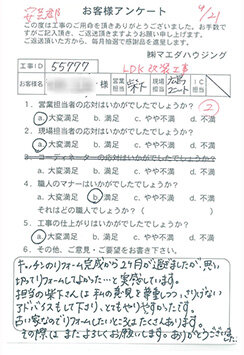 安芸郡
お客様アンケート
9/21
この度は工事のご用命を頂きありがとうございました。お手数で
すがご記入頂き、ご返送頂きますようお願い申し上げます。
ご返送頂いた方から、毎月抽選で感謝品を進呈します。
㈱マエダハウジング
工事ID 55777 LDK改装工事
お客様名 営業担当 柴下 現場担当
1. 営業担当者の応対はいかがでしたでしょうか? ②
a.大変満足 b.満足 c.やや不満 d.不満
2. 現場担当者の応対はいかがでしたでしょうか?
a.大変満足 b.満足 c.やや不満 d.不満
3. コーディネーターの応対はいかがでしたでしょうか?
a.大変満足 b.満足 c.やや不満 d.不満
4. 職人のマナーはいかがでしたでしょうか?
a.大変満足 b.満足 c.やや不満 d.不満
それはどの職人でしょうか?( )
5. 工事の仕上がりはいかがでしたでしょうか?
a.大変満足 b.満足 c.やや不満 d.不満
6. その他、ご意見・ご要望をお書き下さい。
キッチンのリフォーム完成から2ヶ月が過ぎましたが、思い
切ってリフォームしてよかった…と実感しています。
担当の柴下さんは私の意見を尊重しつつ、さりげない
アドバイスもして下さり、とてもやりやすかったです。
古い家なのでリフォームしたいところはたくさんあります。
その際はまたよろしくお願いします。ありがとうございました。